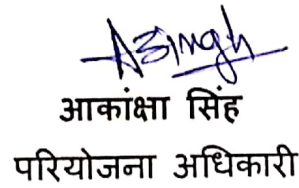 ASingh
आकांक्षा सिंह
परियोजना अधिकारी